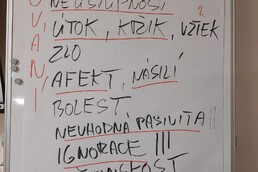 NEÚSTUPNOST
ÚTOK, KŘIK, VZTEK
ZLO
AFEKT, NÁSILÍ
BOLEST
NEVHODNÁ PASIVITA !!
IGNORACE !!!